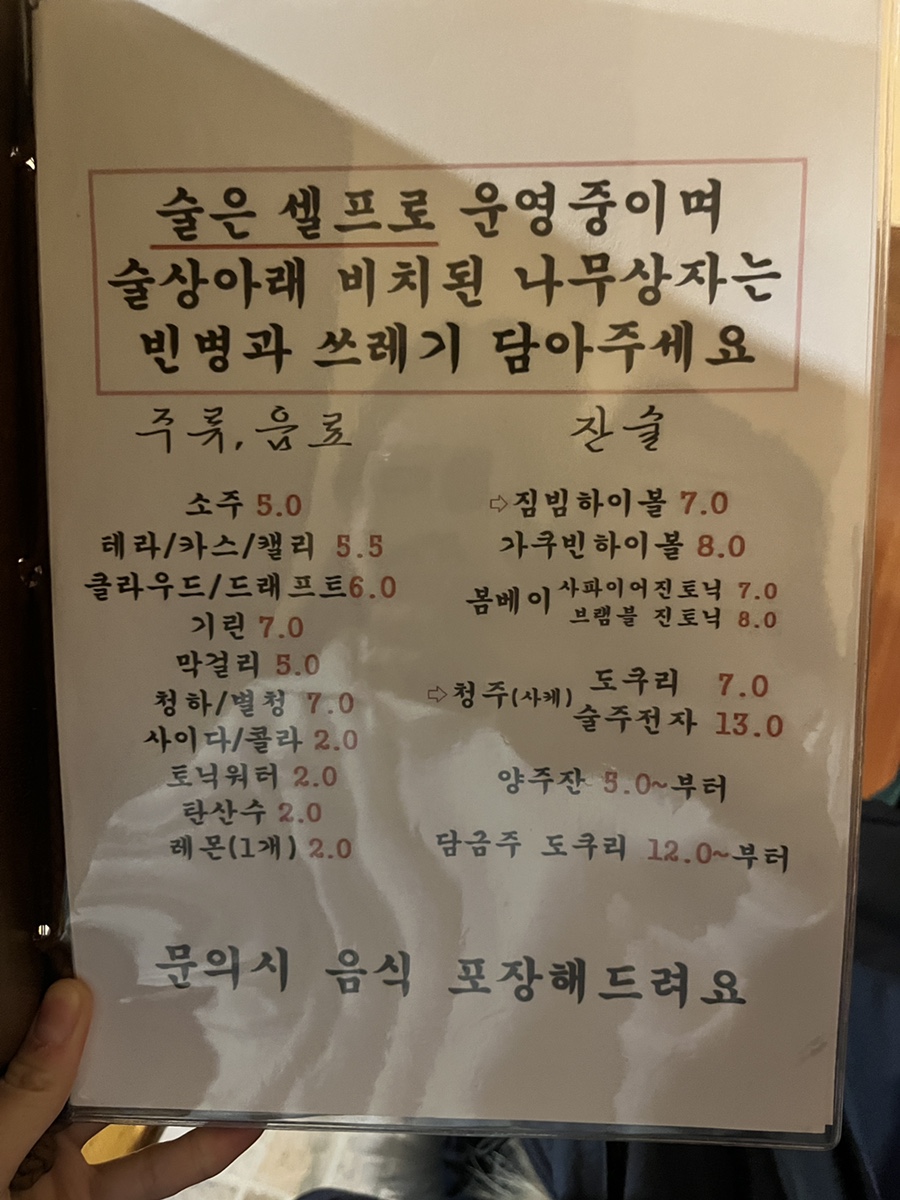 술은 셀프로 운영중이며
술상아래 비치된 나무상자는
빈병과 쓰레기 담아주세요
주류,음료
소주 5.0
테라/카스/캘리 5.5
클라우드/드래프트6.0
기린 7.0
막걸리 5.0
청하/별청 7.0
사이다/콜라 2.0
토닉워터 2.0
탄산수 2.0
레몬(1개) 2.0
잔술
⇨짐빔하이볼 7.0
가쿠빈하이볼 8.0
봄베이 사파이어진토닉 7.0
브램블 진토닉 8.0
⇨청주(사케) 도쿠리 7.0
술주전자 13.0
양주잔 5.0~부터
담금주 도쿠리 12.0~부터
문의시 음식 포장해드려요